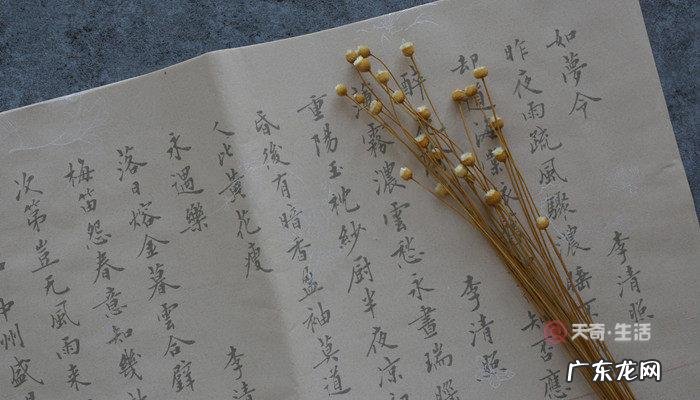 如夢令 李清照
昨夜雨疏風驟濃睡不
却道海棠依舊知否應
醉 李清照
薄霧濃雲愁永晝瑞
重陽玉枕紗厨半夜凉初
昏後有暗香盈袖莫道
人比黃花瘦
永遇樂 李清
落日熔金暮雲合璧
梅笛怨春意知幾
次第豈无風雨来
中州盛
天奇·生活
广东龙网